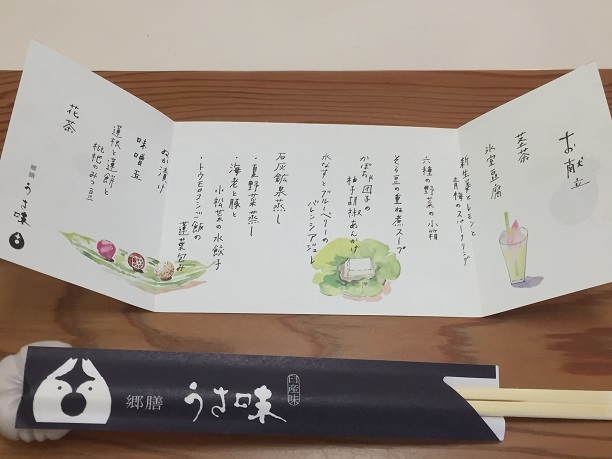 お献立
茎茶
氷室豆腐
新生姜とレモンと
青梅のスパークリング
六種の野菜の小箱
そら豆の重ね煮スープ
かぼちゃ団子の
柚子胡椒あんかけ
水なすとブルーベリーの
バレンシアジュレ
石灰鉱泉蒸し
・夏野菜蒸し
・海老と豚と
小松菜の水餃子
・トウモロコシご飯の
蓮葉包み
ぬか漬け
味噌玉
蓮根と蓮餅と
枇杷のみつ豆
花茶
郷膳
うさ味
郷膳
うさ味
日産味